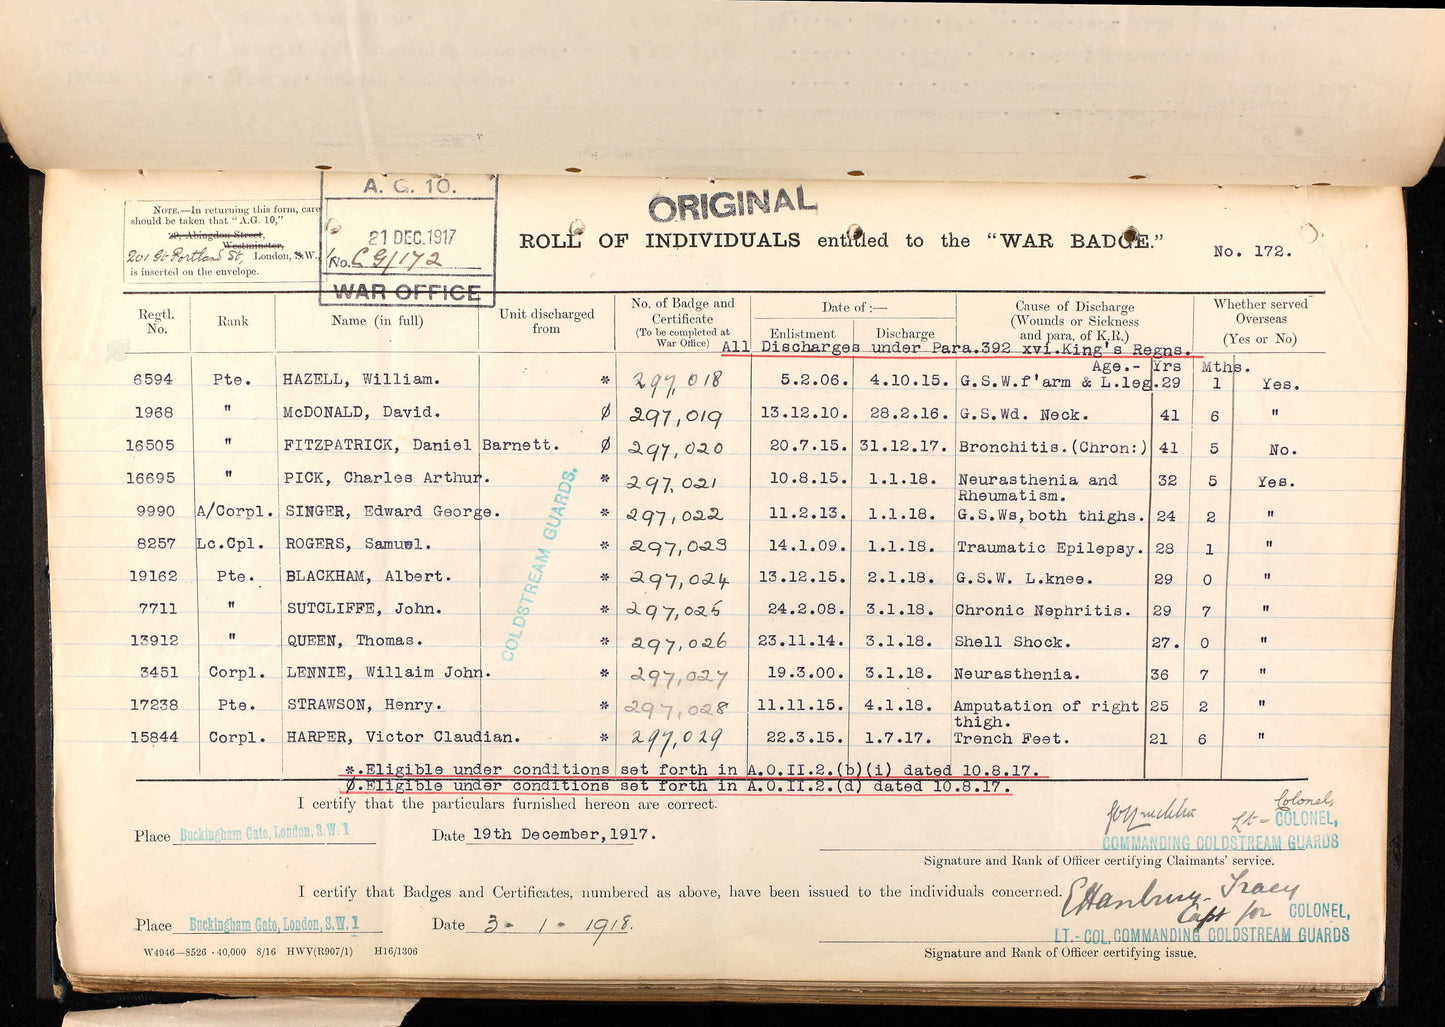 A. G. 10.
21 DEC. 1917
No. CG/172
WAR OFFICE
NOTE.—In returning this form, care
should be taken that "A.G. 10,"
20, Abingdon Street,
Westminster,
201 Gt Portland St, London, S.W.,
is inserted on the envelope.
ORIGINAL
ROLL OF INDIVIDUALS entitled to the "WAR BADGE."
No. 172.
Regtl. No. Rank Name (in full) Unit discharged from No. of Badge and Certificate (To be completed at War Office) Date of :— Enlistment Discharge Cause of Discharge (Wounds or Sickness and para. of K.R.) Whether served Overseas (Yes or No)
All Discharges under Para.392 xvi.King's Regns.
Age.- Yrs Mths.
6594 Pte. HAZELL, William. * 297,018 5.2.06. 4.10.15. G.S.W.f'arm & L.leg. 29 1 Yes.
1968 " McDONALD, David. Ø 297,019 13.12.10. 28.2.16. G.S.Wd. Neck. 41 6 "
16505 " FITZPATRICK, Daniel Barnett. Ø 297,020 20.7.15. 31.12.17. Bronchitis.(Chron:) 41 5 No.
16695 " PICK, Charles Arthur. * 297,021 10.8.15. 1.1.18. Neurasthenia and 32 5 Yes.
Rheumatism.
9990 A/Corpl. SINGER, Edward George. * 297,022 11.2.13. 1.1.18. G.S.Ws,both thighs. 24 2 "
8257 Lc.Cpl. ROGERS, Samuel. * 297,023 14.1.09. 1.1.18. Traumatic Epilepsy. 28 1 "
19162 Pte. BLACKHAM, Albert. * 297,024 13.12.15. 2.1.18. G.S.W. L.knee. 29 0 "
7711 " SUTCLIFFE, John. * 297,025 24.2.08. 3.1.18. Chronic Nephritis. 29 7 "
13912 " QUEEN, Thomas. * 297,026 23.11.14. 3.1.18. Shell Shock. 27. 0 "
3451 Corpl. LENNIE, Willaim John. * 297,027 19.3.00. 3.1.18. Neurasthenia. 36 7 "
17238 Pte. STRAWSON, Henry. * 297,028 11.11.15. 4.1.18. Amputation of right 25 2 "
thigh.
15844 Corpl. HARPER, Victor Claudian. * 297,029 22.3.15. 1.7.17. Trench Feet. 21 6 "
COLDSTREAM GUARDS.
*.Eligible under conditions set forth in A.O.II.2.(b)(i) dated 10.8.17.
Ø.Eligible under conditions set forth in A.O.II.2.(d) dated 10.8.17.
I certify that the particulars furnished hereon are correct.
Place Buckingham Gate, London, S.W.1 Date 19th December,1917.
Lt-Colonel,
COLONEL,
COMMANDING COLDSTREAM GUARDS
Signature and Rank of Officer certifying Claimants' service.
I certify that Badges and Certificates, numbered as above, have been issued to the individuals concerned.
E Hanbury-Tracy
Capt for COLONEL,
Place Buckingham Gate, London, S.W.1 Date 3 - 1 - 1918.
LT.-COL. COMMANDING COLDSTREAM GUARDS
Signature and Rank of Officer certifying issue.
W4946—8526 40,000 8/16 HWV(R907/1) H16/1306